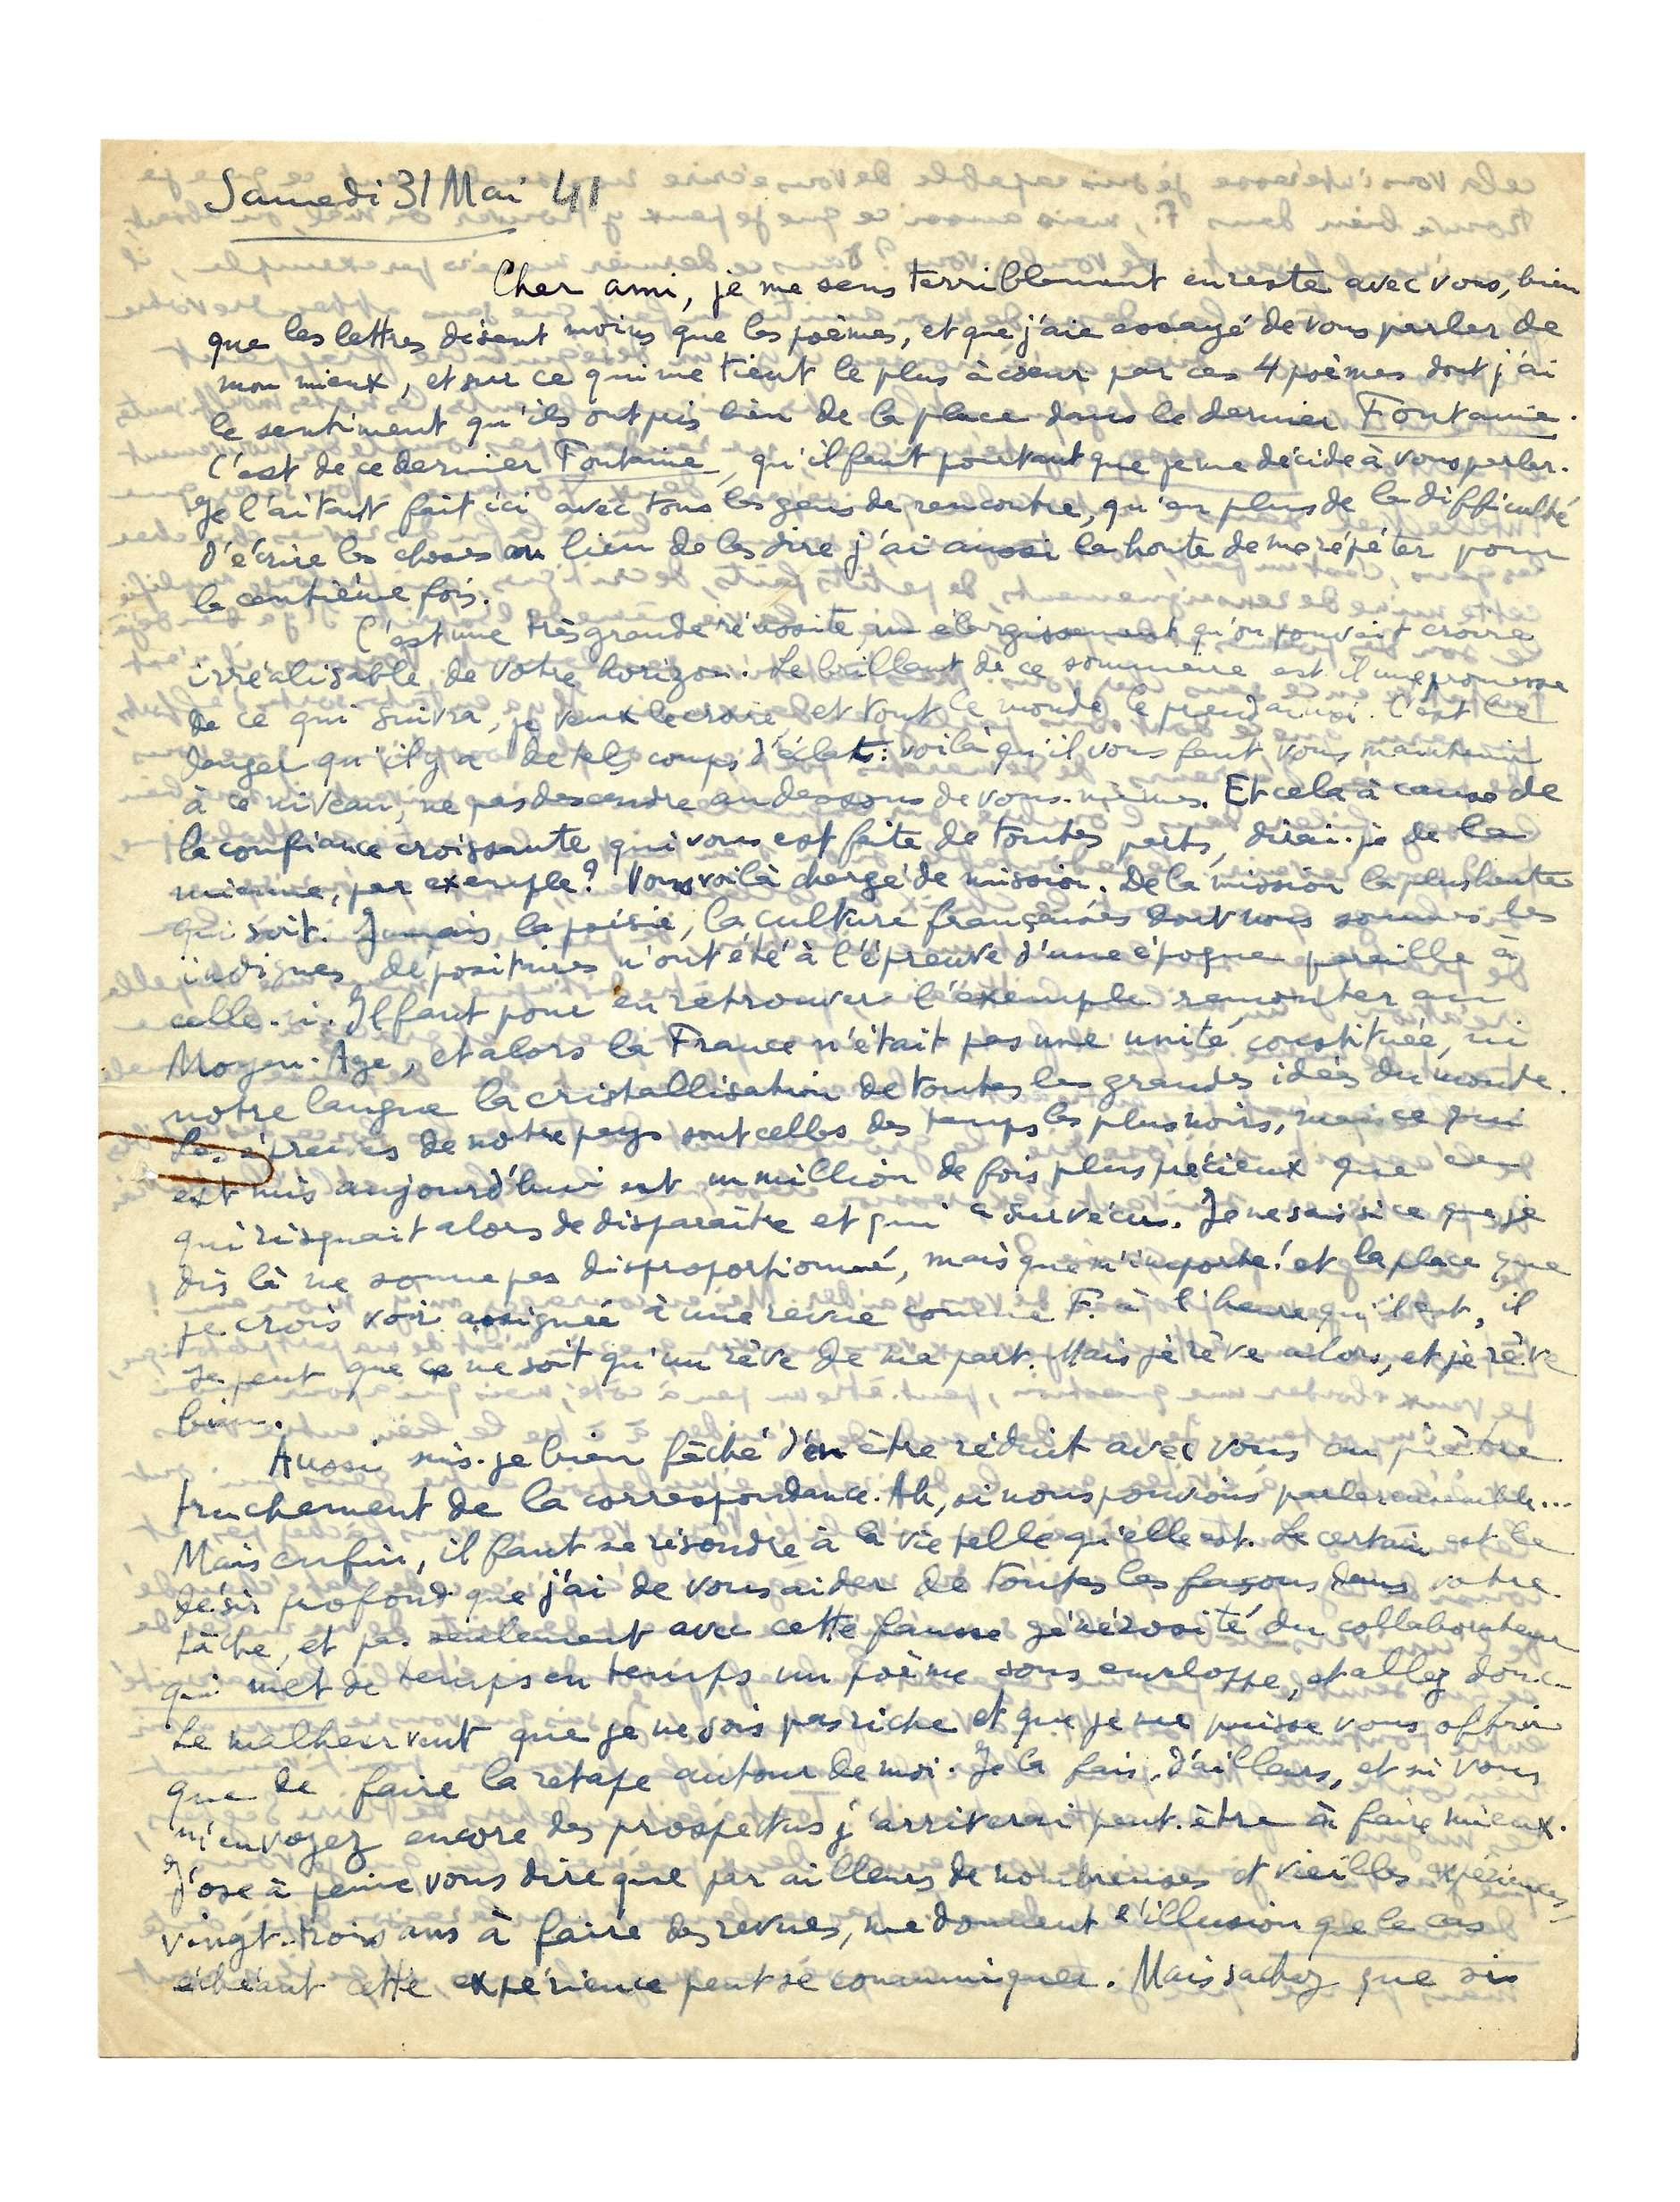 Samedi 31 Mai 41
Cher ami, je me sens terriblement en reste avec vous, bien
que les lettres disent moins que les poèmes, et que j'aie essayé de vous parler de
mon mieux, et sur ce qui me tient le plus à cœur par ces 4 poèmes dont j'ai
le sentiment qu'ils ont pris bien de la place dans le dernier Fontaine.
C'est de ce dernier Fontaine, qu'il faut pourtant que je me décide à vous parler.
Je l'ai tant fait ici avec tous les gens de rencontre, qu'en plus de la difficulté
d'écrire les choses au lieu de les dire j'ai aussi la honte de me répéter pour
la centième fois.
C'est une très grande réussite, un élargissement qu'on pouvait croire
irréalisable de votre horizon. Le brillant de ce sommaire est-il une promesse
de ce qui suivra, je veux le croire, et tout le monde le prend ainsi. C'est le
danger qu'il y a de tels coups d'éclat: voilà qu'il vous faut vous maintenir
à ce niveau, ne pas descendre au dessous de vous-mêmes. Et cela à cause de
la confiance croissante qui vous est faite de toutes parts, dirai-je de la
mienne, par exemple? Vous voilà chargé de mission. De la mission la plus haute
qui soit. Jamais la poésie, la culture françaises dont nous sommes les
indignes dépositaires n'ont été à l'épreuve d'une époque pareille à
celle-ci. Il faut pour en retrouver l'exemple remonter au
Moyen-Age, et alors la France n'était pas une unité constituée, ni
notre langue la cristallisation de toutes les grandes idées du monde.
Les épreuves de notre pays sont celles des temps les plus noirs, mais ce qui
est mis aujourd'hui est un million de fois plus précieux que ce
qui risquait alors de disparaître et qui a survécu. Je ne sais si ce que je
dis là ne sonne pas disproportionné, mais que m'importe! et la place que
je crois voir assignée à une revue comme F. à l'heure qu'il est, il
se peut que ce ne soit qu'un rêve de ma part. Mais je rêve alors, et je rêve
bien.
Aussi suis-je bien fâché d'en être réduit avec vous au piètre
truchement de la correspondance. Ah, si nous pouvions parler ensemble...
Mais enfin, il faut se résoudre à la vie telle qu'elle est. Le certain est le
désir profond que j'ai de vous aider de toutes les façons dans votre
tâche, et pas seulement avec cette fausse générosité du collaborateur
qui met de temps en temps un poème sous enveloppe, et allez donc..
Le malheur veut que je ne sois pas riche et que je ne puisse vous offrir
que de faire la retape autour de moi. Je la fais, d'ailleurs, et si vous
m'envoyez encore des prospectus j'arriverai peut-être à faire mieux.
J'ose à peine vous dire que par ailleurs de nombreuses et vieilles expériences,
vingt-trois ans à faire des revues, me donnent l'illusion que le cas
échéant cette expérience peut se communiquer. Mais sachez que si